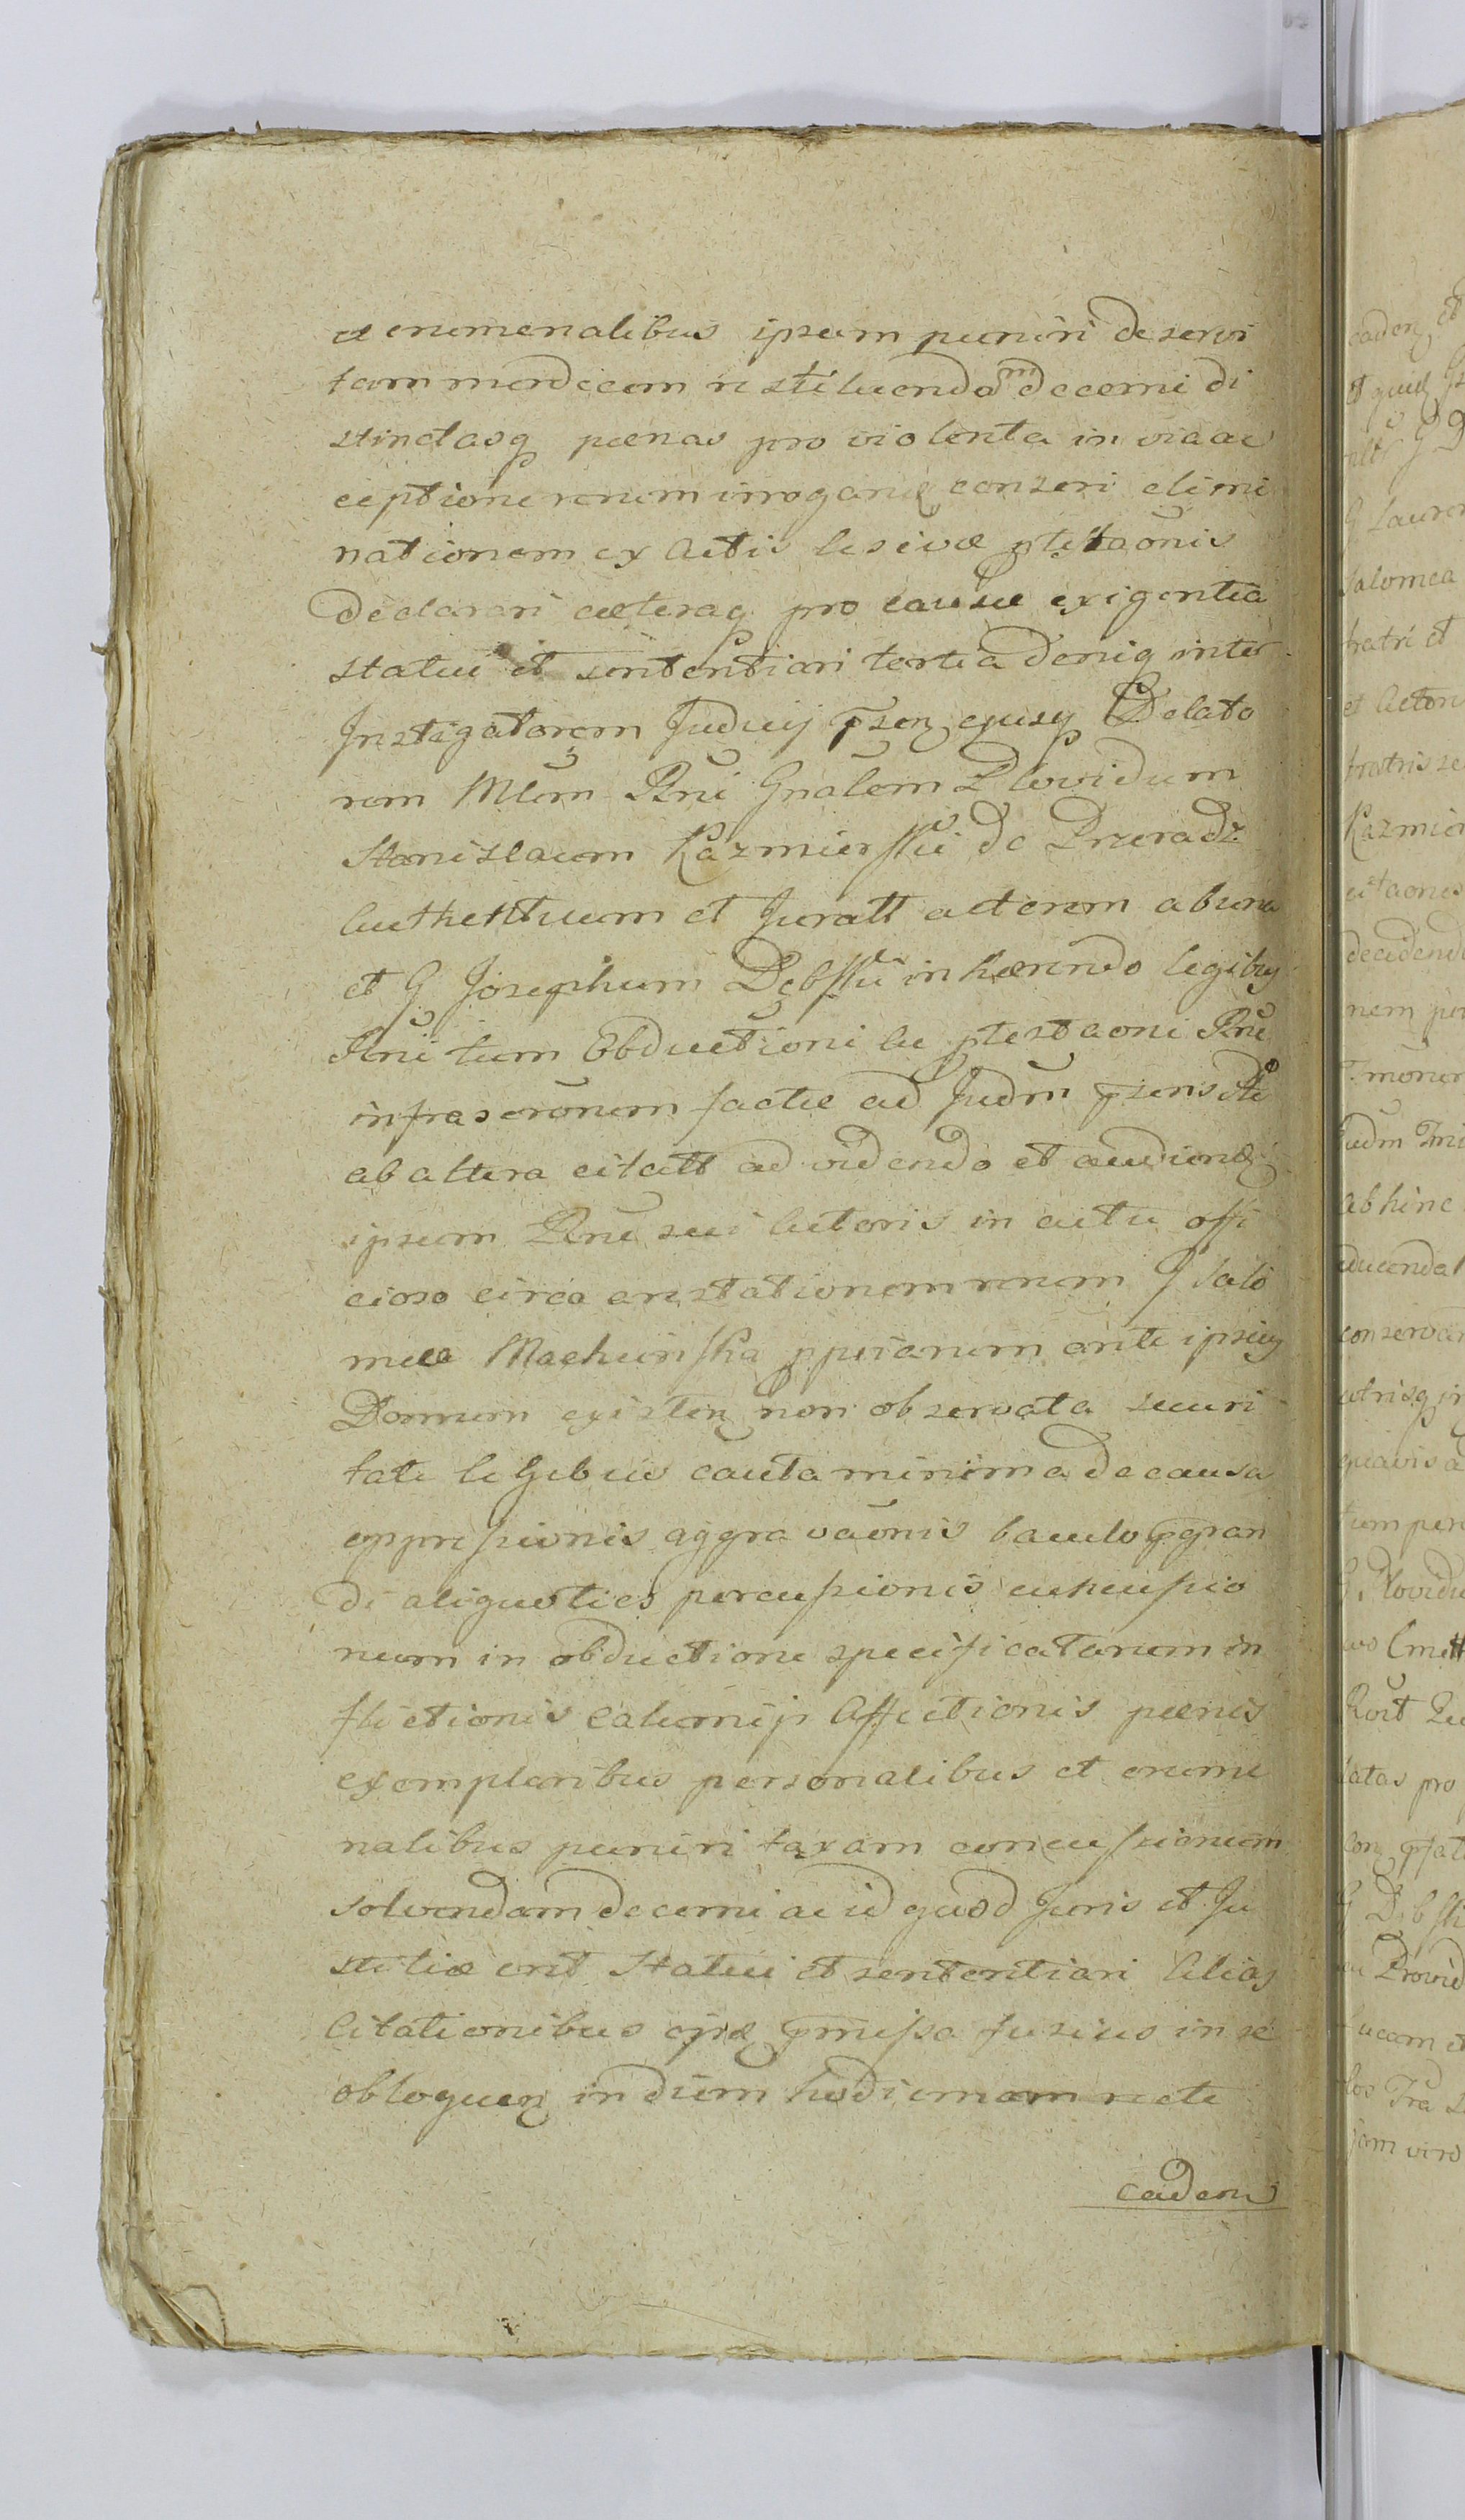 et crimenalibus ipsum puniri deservi
tam mercedem restituendam decerni di
stinctasq pœnas pro violenta in via ac
ceptione rerum irrogand censeri elimi
nationem ex Actis lesivæ ptestaonis
declarari cæteraq pro causæ exigentia
statui et sententiari tertia deniq inter
Instigatorem Judicij psen ejusq Delato
rem Mlem Rni Gnalem Providum
Stanislaum Kazmierski de Przeradz
Authenticum et Juratt actorem ab una
et G Josephum Dębski inhærendo legibus
Rni tum Obductioni ac ptestaoni Rne
infrascronum factæ ad Judm psens
ab altera citatt ad videndo et audiend
ipsum Rne sui Actoris in actu offi
cioso circa arestationem rerum G Salo
meæ Machcinska ppriarum ante ipsius
Domum existen non observata securi
tate legibus cauta minima de causa
oppressionis aggravaonis baculo ppran
di aliquoties percussionis
num in obductione specificatarum in
flictionis Calumnij Affectionis pœnis
exemplaribus personalibus et crimi
nalibus puniri taxam concussionum
solvendam decerni ac id quod Juris et Ju
stitiæ erit Statui et sententiari Alias
Citationibus pmissa fusius in se
obloquen in diem hodiernam recte
cadem
eaden et
et quid
G Lauren
Salomea
fratri et
et Actore
fratris se
Kazmier
decidend
nem per
ab hinc
conservan
utrisq in
quavis a
tum per
latas pro
jam vero